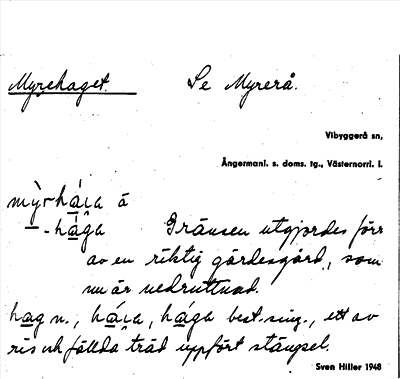 Myrehaget. Se Myrerå.
Vibyggerå sn,
Ångermanl. s. doms. tg., Västernorrl. l.
mỳr-háıa â
-hága Gränsen utgjordes förr
av en riktig gärdesgård, som
nu är nedruttnad.
hag n., háıa, hága best. sing., ett av
ris och fällda träd uppfört stängsel.
Sven Hiller 1948